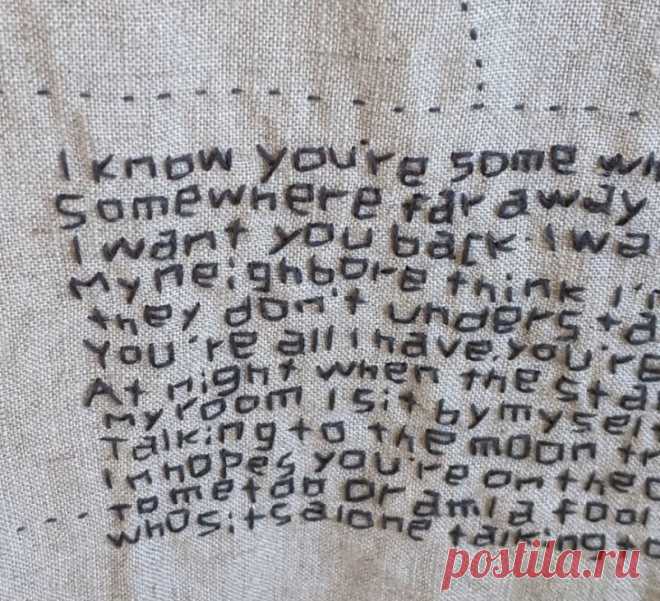 I know you're some wh
Somewhere far away
I want you back I wa
My neighbore think I'm
they don't understa
You're all I have, you're
At night when the sta
My room I sit by mysel
Talking to the moon tr
In hopes you're on the o
to me too or am I a fool
who sits alone talking to
postila.ru